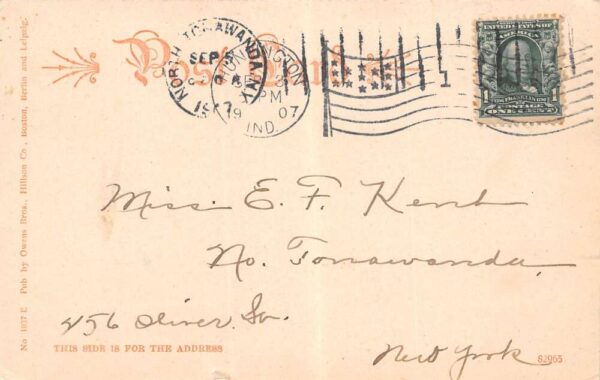 Post Card
NORTH TONAWANDA, N.Y.
SEP
1907
HUNTINGTON
SEP 2
PM
19 07
IND.
1
UNITED STATES OF AMERICA
1 FRANKLIN 1
POSTAGE
ONE CENT
Miss. E. F. Kent
No. Tonawanda,
456 Oliver. St.
New York
THIS SIDE IS FOR THE ADDRESS
82965
No 1017 E Pub by Owens Bros., Hillson Co, Boston, Berlin and Leipzig.